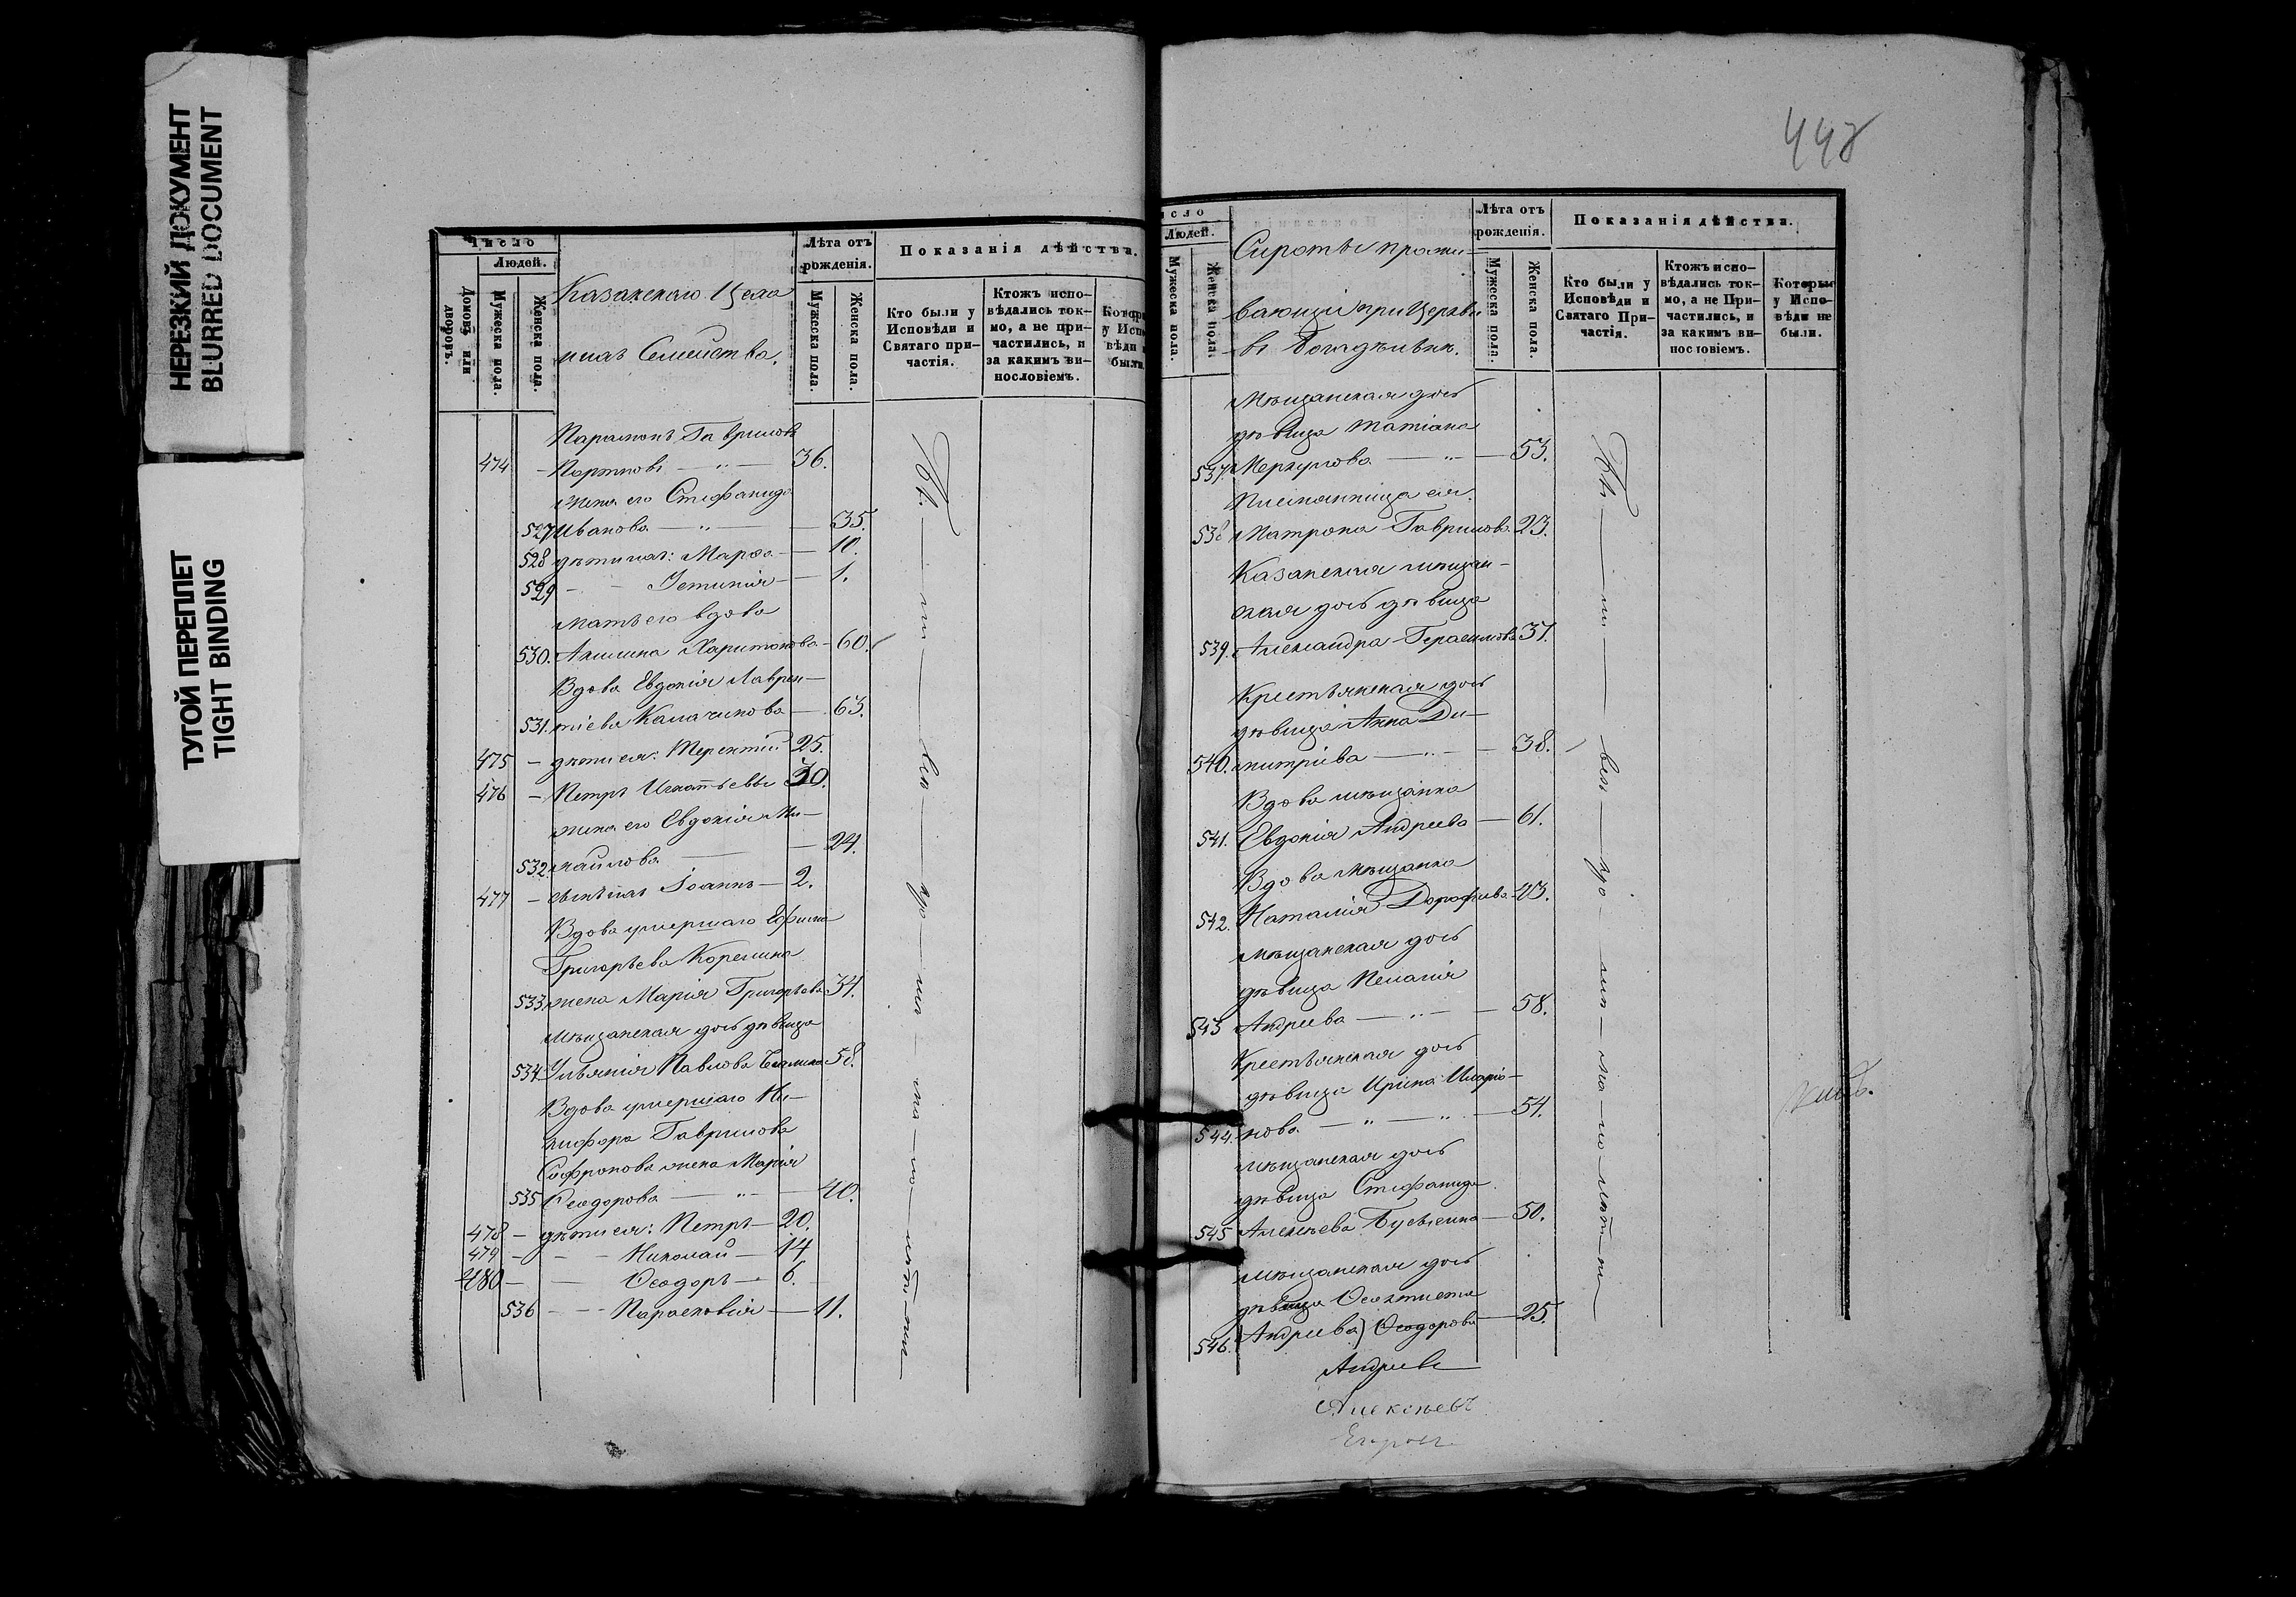 НЕРЕЗКИЙ ДОКУМЕНТ
BLURRED DOCUMENT
ТУГОЙ ПЕРЕПЛЕТ
TIGHT BINDING
Число
Людей.
Домовъ или дворовъ.
Мужеска пола.
Женска пола.
Казанскаго Цеха
Семейства.
Лѣта отъ рожденія.
Мужеска пола.
Женска пола.
Показанія дѣйства.
Кто были у Исповѣди и Святаго причастія.
Ктожъ исповѣдались токмо, а не причастились, и за какимъ винословіемъ.
Парамонъ Гавриловъ
474 — Портновъ — 36.
жена его Стефанида
527 Иванова — 35.
528 дѣти ихъ: Марѳа — 10.
529 — 1.
мать его вдова
530. Акилина Харитонова — 60.
Вдова Евдокія Лаврен—
531. тіева Калачикова — 63.
475 — дѣти ея: Терентій 25.
476 — Петръ Игнатьевы 30.
жена его Евдокія Ми—
532 хайлова — 24.
477 — сынъ ихъ Іоаннъ — 2.
Вдова умершаго Ефима
Григорьева Корелина
533 жена Марія Григорьева 34.
мѣщанская дочь дѣвица
534 Ульянія Павлова 58.
Вдова умершаго Ни—
кифора Гаврилова
Софронова жена Марія
535 Ѳеодорова — 40.
478 — дѣти ея: Петръ — 20.
479 — Николай — 14
480 — Ѳеодоръ — 6.
536 — Парасковія — 11.
Вѣ — ли — ко — по — ста
448
Число
Людей.
Мужеска пола.
Женска пола.
Сироты прожи—
вающіи при Церкви
въ Богадѣльнѣ.
Лѣта отъ рожденія.
Мужеска пола.
Женска пола.
Показанія дѣйства.
Кто были у Исповѣди и Святаго Причастія.
Ктожъ исповѣдались токмо, а не Причастились, и за какимъ винословіемъ.
Которые у Исповѣди не были.
Мѣщанская дочь
дѣвица Татіана
537. Меркулова — 53.
Племянница ея.
538 Матрона Гаврилова 23.
Казанская мѣщан—
ская дочь дѣвица
539. Александра Герасимова 37.
Крестьянская дочь
дѣвица Анна Ди—
540. митріева — 38.
Вдова мѣщанка
541. Евдокія Андреева — 61.
Вдова мѣщанка
542. Наталія Дорофеева 43.
мѣщанская дочь
дѣвица Пелагія
543 Андреева — 58.
Крестьянская дочь
дѣвица Ирина Иларіо—
544. нова — 54.
мѣщанская дочь
дѣвица Стефанида
545 Алексѣева — 50.
мѣщанская дочь
дѣвица Ѳеоктиста
546. (Андреева) Ѳеодорова — 25.
Андреевъ
Алексѣевъ